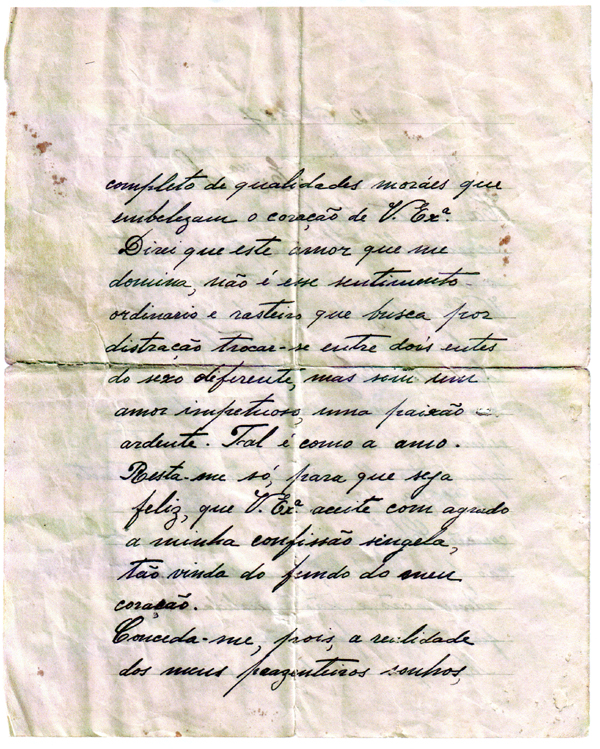 completo de qualidades moráes que
embelezam o coração de V. Exª.
Direi que este amor que me
domina, não é esse sentimento
ordinario e rasteiro que busca por
distração trocar-se entre dois entes
do sexo deferente, mas sim um
amor impetuoso, uma paixão
ardente. Tal é como a amo.
Resta-me só, para que seja
feliz, que V. Exª. aceite com agrado
a minha confissão singela,
tão vinda do fundo do meu
coração.
Conceda-me, pois, a realidade
dos meus prazenteiros sonhos,